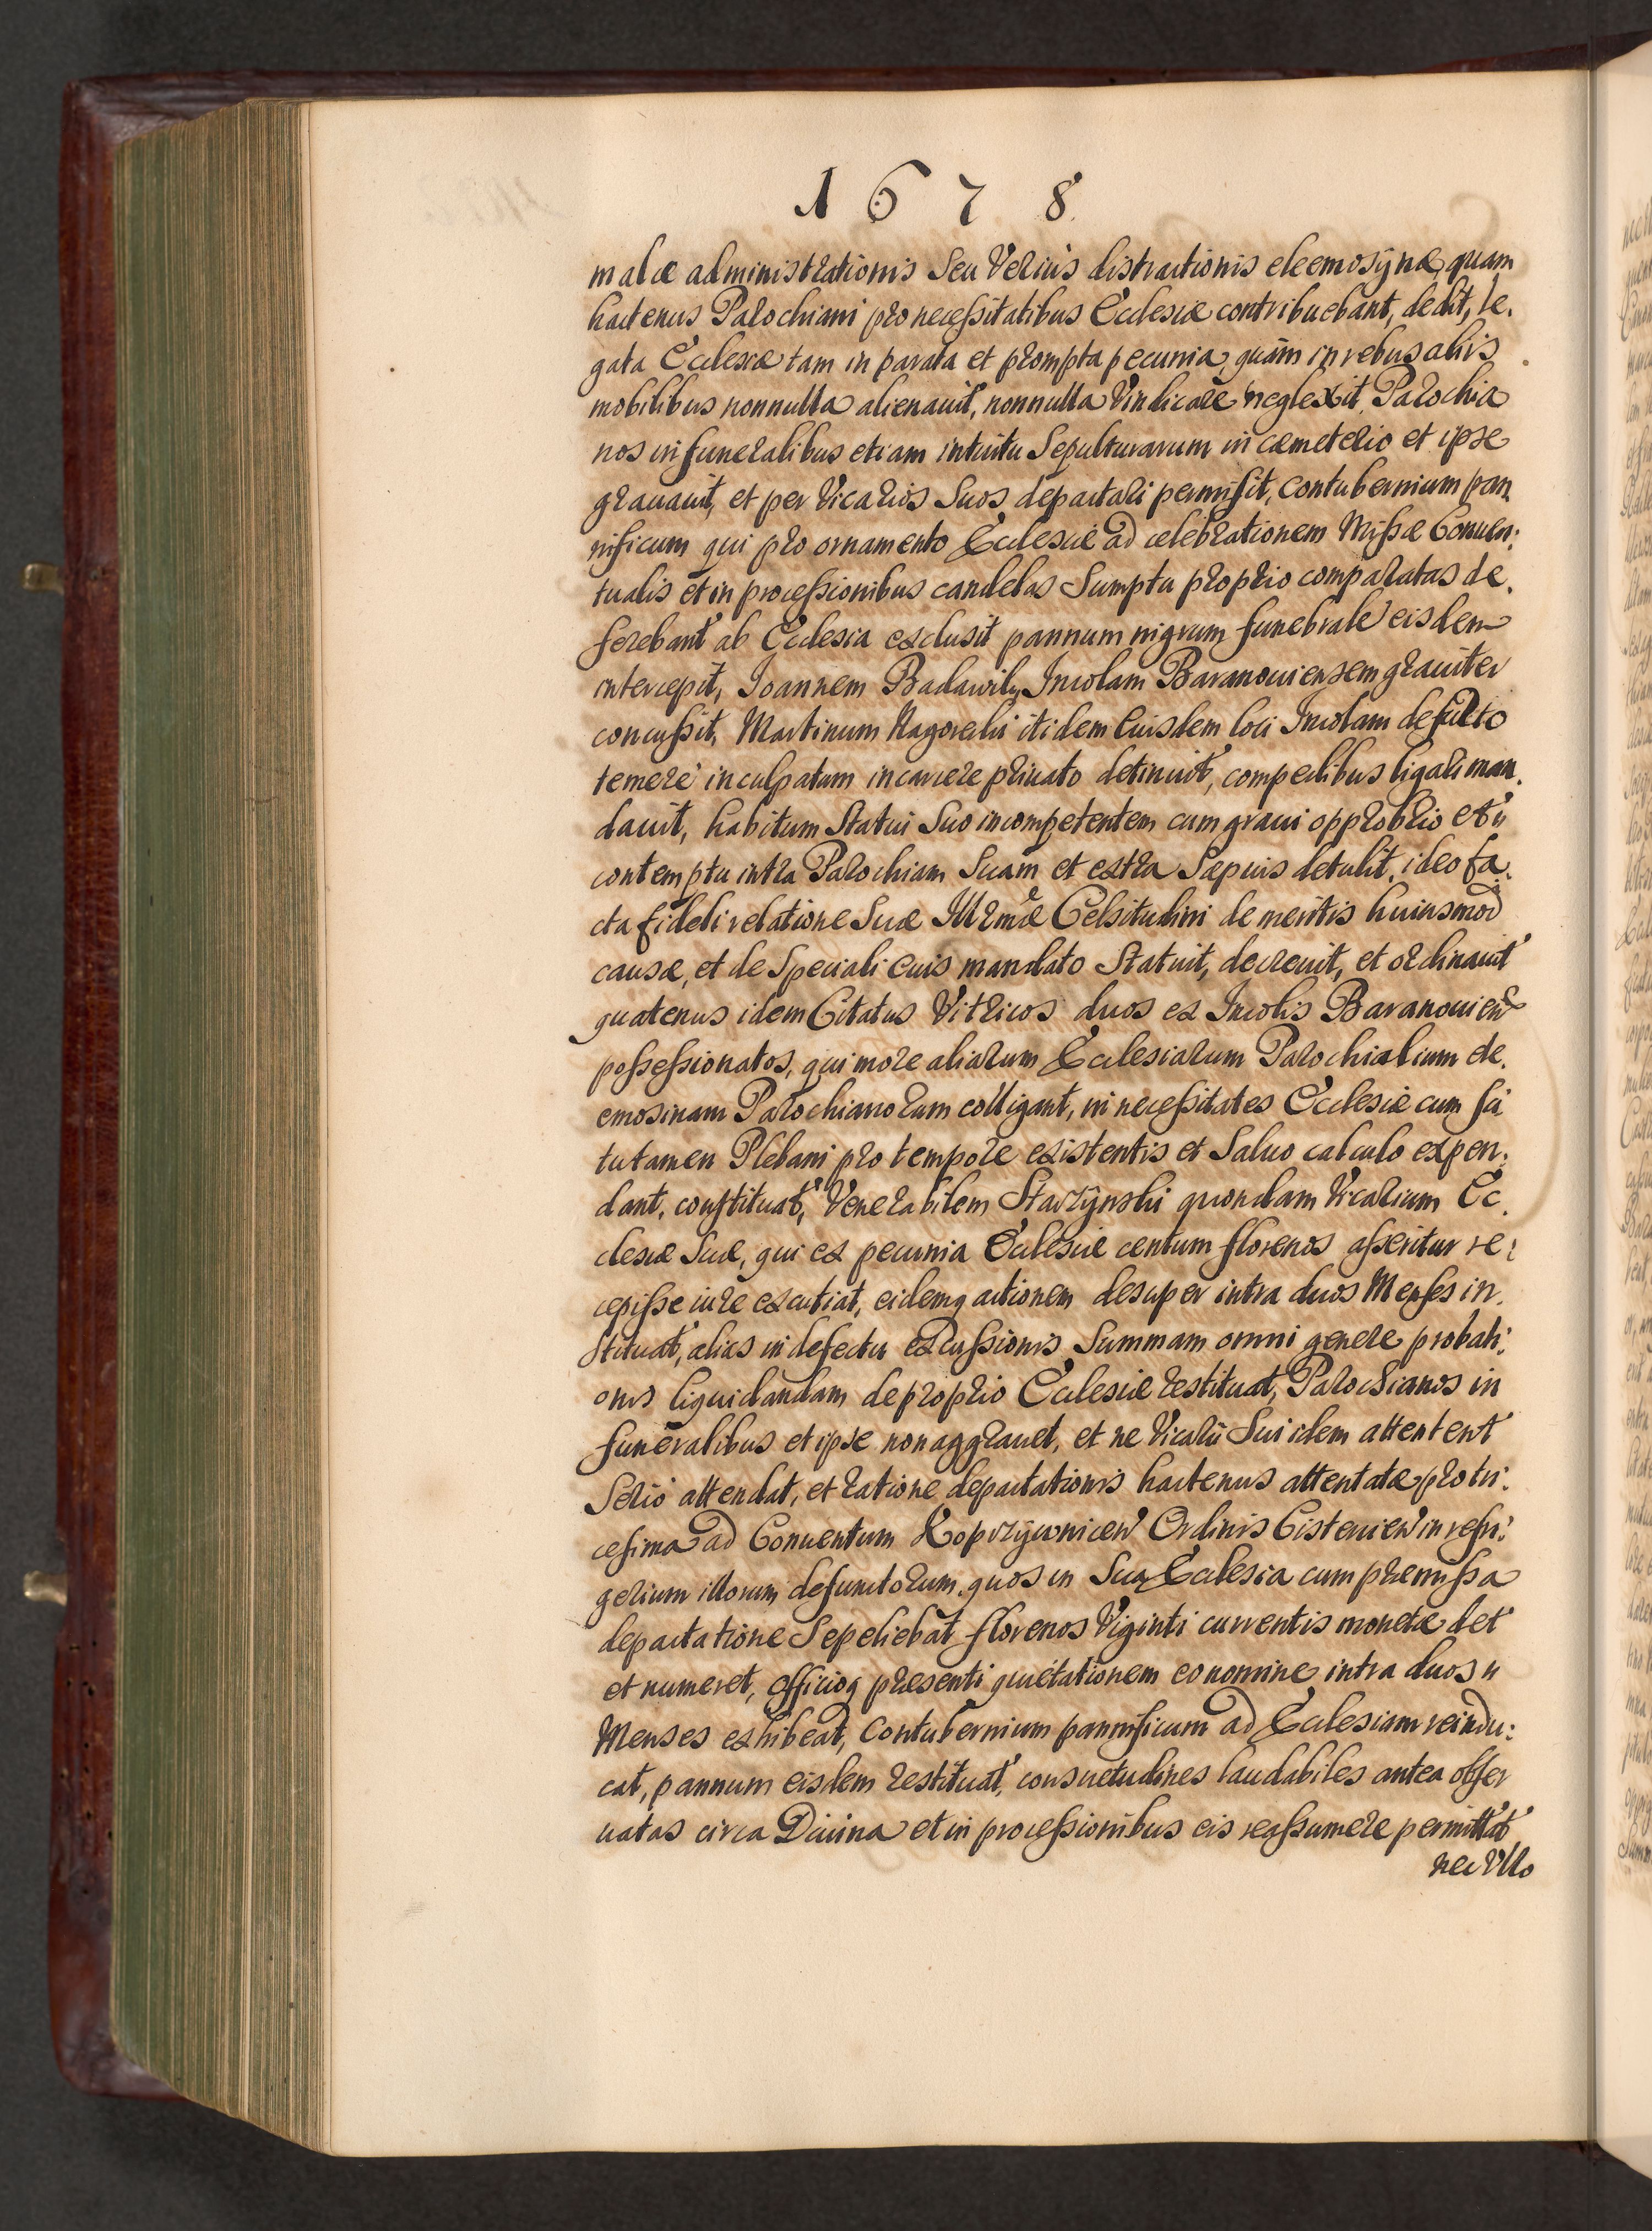 1678
malæ administrationis seu verius distractionis eleemosÿnæ, quam
hactenus Parochiani pro necessitatibus Ecclesiæ contribuebant, dedit, le.
gata Ecclesiæ tam in parata et prompta pecunia, quàm in rebus aliis
mobilibus nonnulla alienauit, nonnulla vindicare neglexit, Parochia
nos in funeralibus etiam intuitu sepulturarum in cæmeterio et ipse
grauauit, et per vicarios suos depactari permisit, contubernium pan
nificum qui pro ornamento Ecclesiæ ad celebrationem Missæ Conuen:
tualis et in processionibus candelas sumptu proprio comparatas de.
ferebant ab Ecclesia exclusit pannum nigrum funebrale eisdem
intercepit, Joannem Incolam Baranouiensem grauiter
concussit, Martinum itidem Euisdem loci Incolam de furto
temerè inculpatum in carcere priuato detinuit, compedibus ligari man.
dauit, habitum statui suo incompetentem cum graui opprobrio et
contemptu intra Parochiam suam et extra sæpius detulit, ideo fa.
cta fideli relatione suæ Illrmæ Celsitudini de meritis huiusmod
causæ, et de speciali euis mandato statuit, decreuit, et ordinauit
quatenus idem Citatus vitricos duos ex Incolis Baranouien
possessionatos, qui more aliarum Ecclesiarum Parochialium ele.
emosinam Parochianorum colligant, in necessitates Ecclesiæ cum sci
tutamen Plebani pro tempore existentis et saluo calculo expen:
dant, constituat, Venerabilem Starzÿnski quondam vicarium Ec.
clesiæ suæ, qui ex pecunia Ecclesiæ centum florenos asseritur re:
cepisse iure excutiat, eidemq actionem desuper intra duos Menses in.
stituat, alias in defectu excussionis summam omni genere probati:
onis liquidandam de proprio Ecclesiæ restituat, Parochianos in
funeralibus et ipse non aggrauet, et ne vicarii sui idem attentent
serio attendat, et ratione depactationis hactenus attentatæ pro tri:
cesima ad Conuentum Koprzÿwnicen Ordinis Cistercien in refri:
gerium illorum defunctorum, quos in sua Ecclesia cum præmissa
depactatione sepeliebat florenos viginti currentis monetæ det
et numeret, officioq præsenti quietationem eo nomine intra duos
Menses exhibeat, Contubernium pannificum ad Ecclesiam reindu:
cat, pannum eisdem restituat, consuetudines laudabiles antea obser
uatas circa Diuina et in processionibus eis reassumere permittat
nec vllo